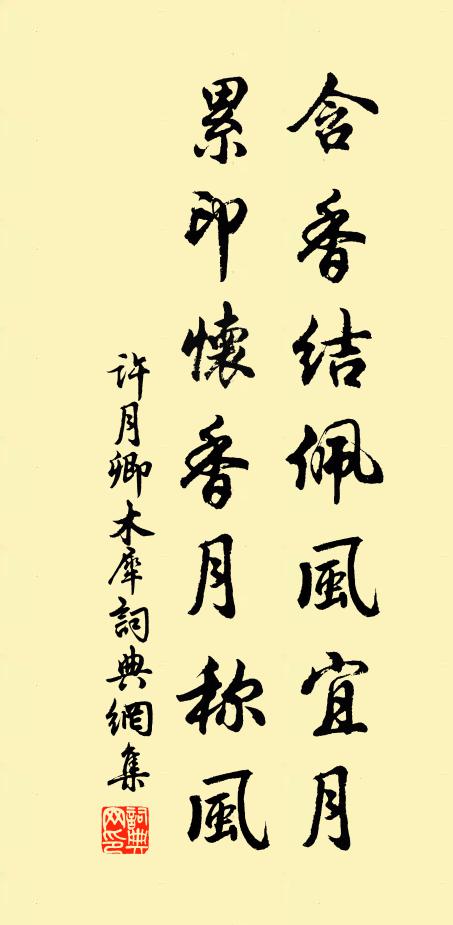 含香结佩風宜月
累印懷香月称風
许月卿木犀詞典網集
詞典网印